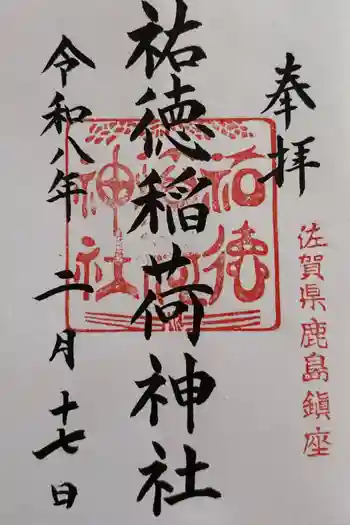 奉拝
佐賀県鹿島鎮座
祐徳稲荷神社
祐徳
稲荷
神社
令和八年二月十七日